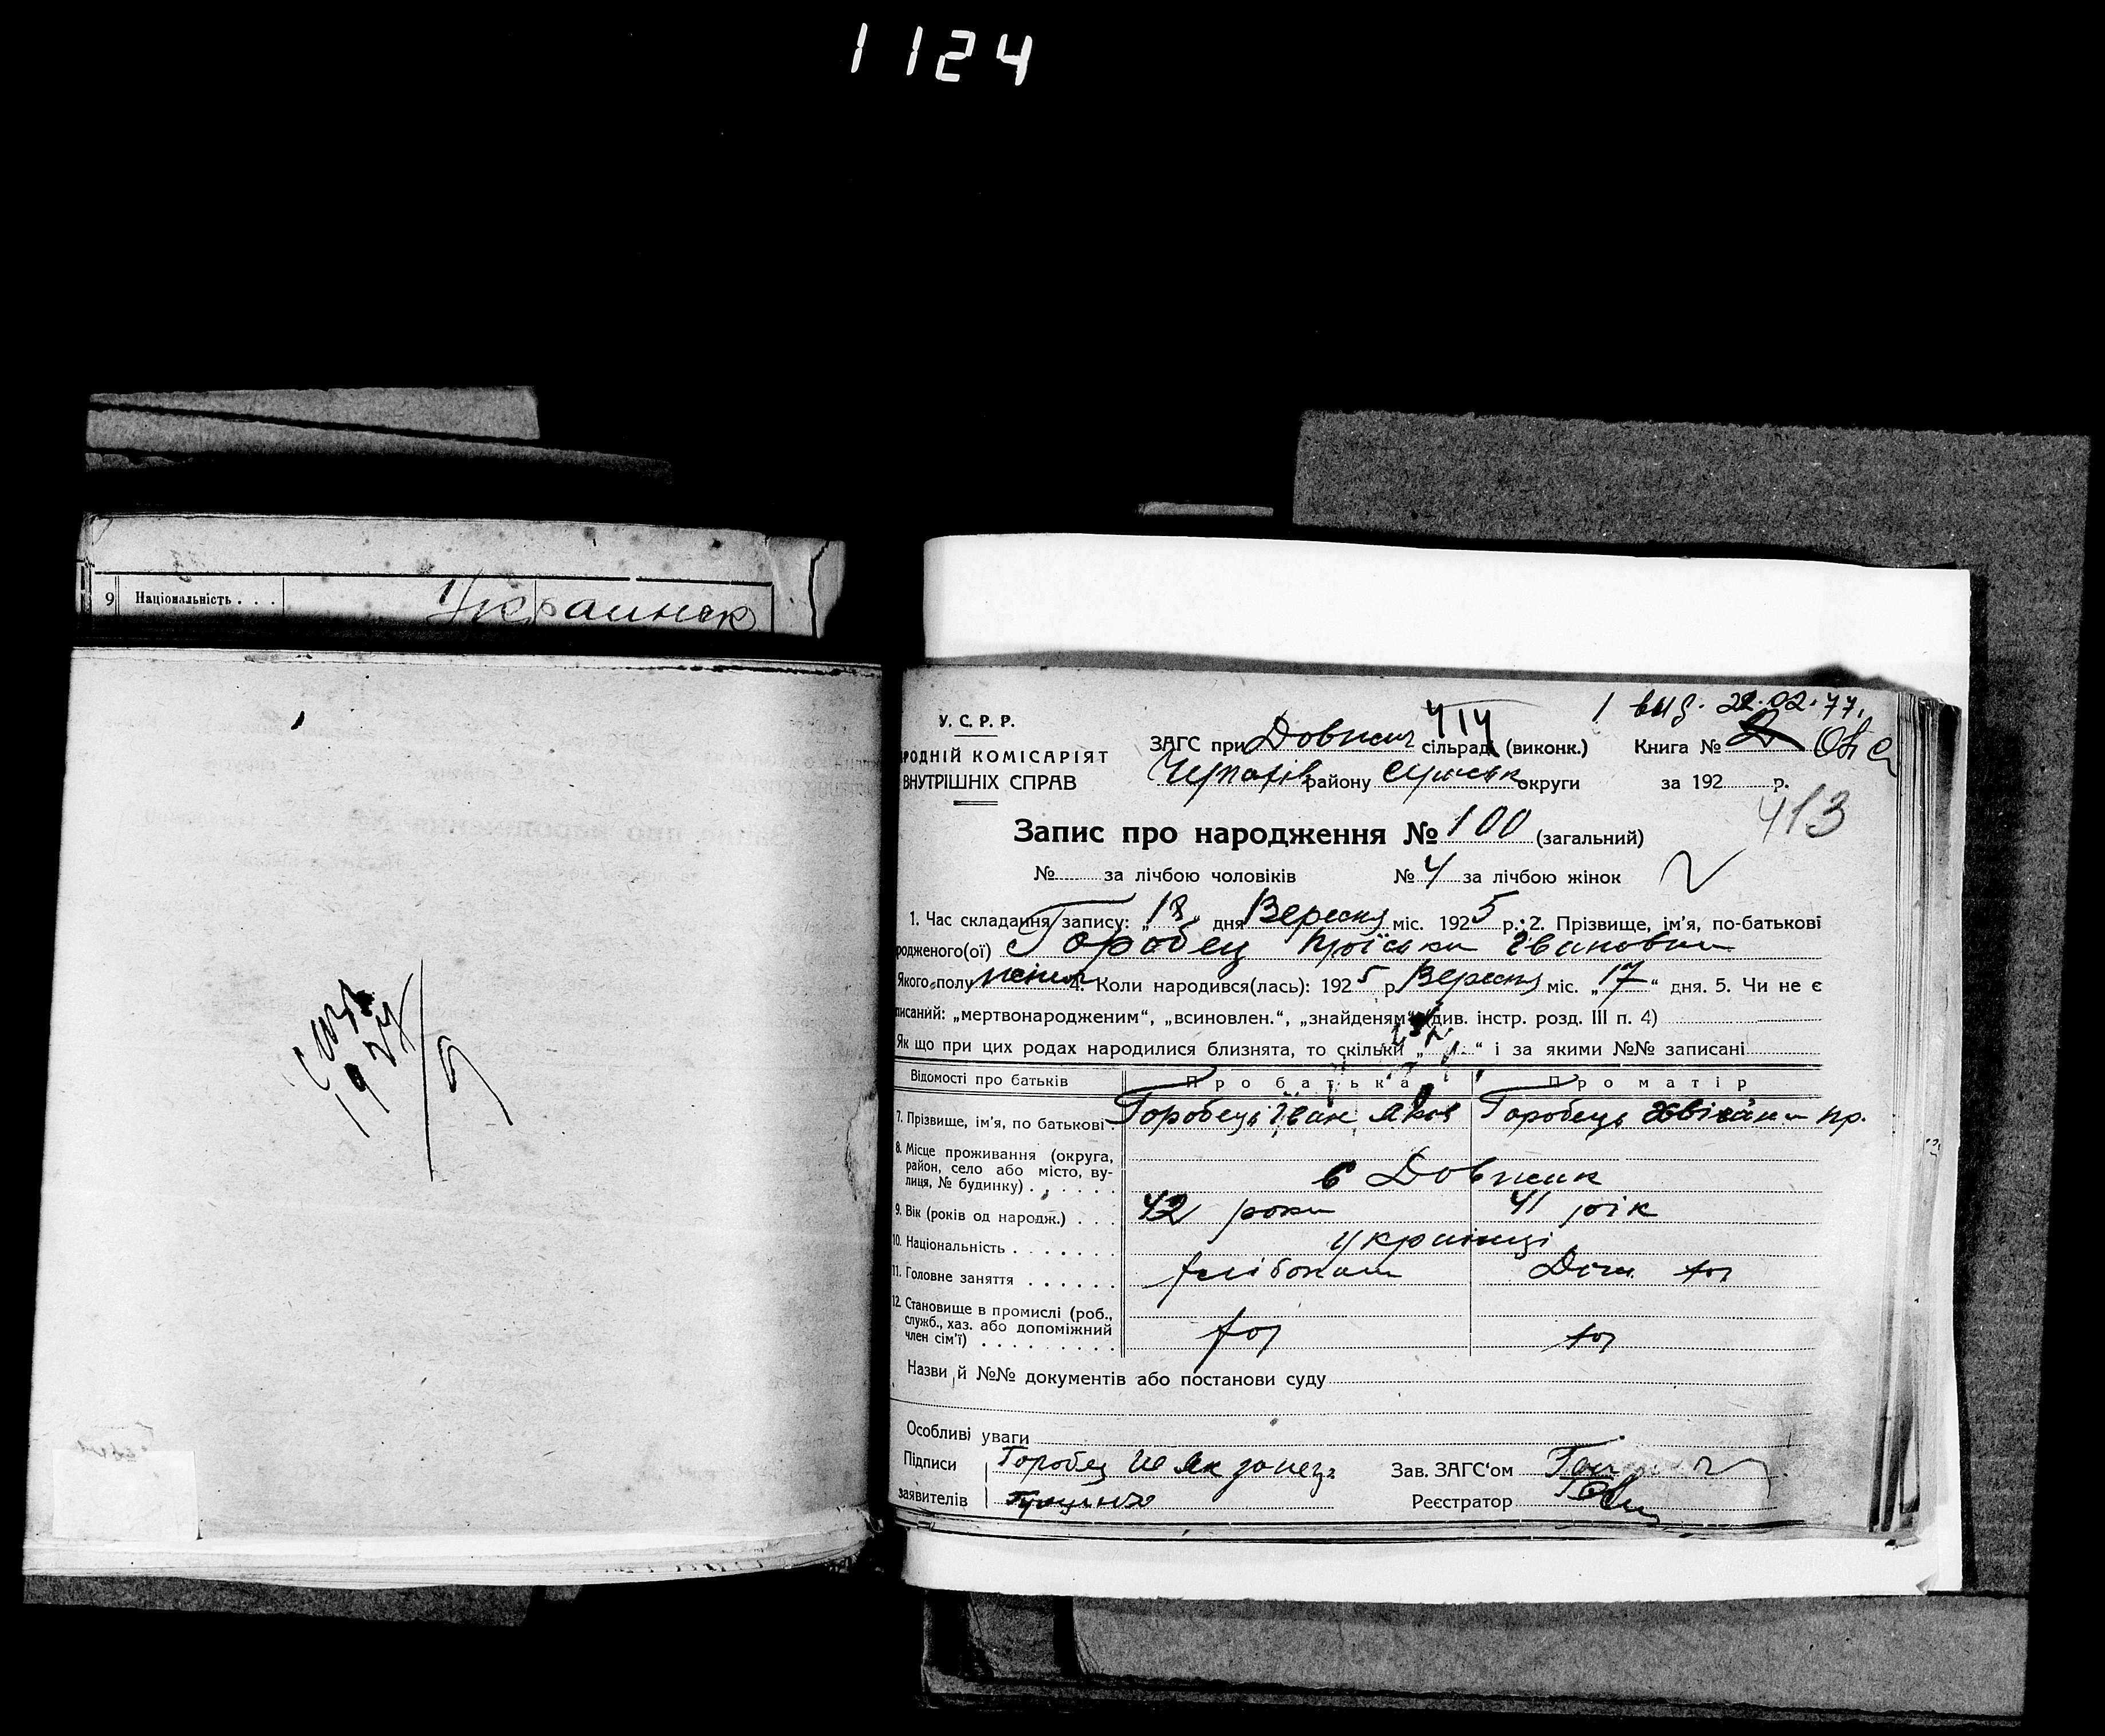 1124
9 Національність . . .
Украинск
1924
9
1 вид. 22.02.77.
414
У. С. Р. Р.
РОДНІЙ КОМІСАРІЯТ
ВНУТРІШНІХ СПРАВ
ЗАГС при Довжик сільраді (виконк.) Книга №
района Сумськ округи за 192 р.
413
Запис про народження № 100 (загальний)
№ за лічбою чоловіків № 4 за лічбою жінок
1. Час складання запису: „18“ дня Вересня міс. 1925 р. 2. Прізвище, ім'я, по-батькові
родженого(ої) Горобец Ивановна
Якого полу жіноч 4. Коли народився(лась): 1925 р. Вересня міс. „17“ дня. 5. Чи не є
писаний: „мертвонародженим“, „всиновлен.“, „знайденям“ (див. інстр. розд. III п. 4)
Як що при цих родах народилися близнята, то скільки „ “ і за якими №№ записані
Відомості про батьків Про батька Про матір
7. Прізвище, ім'я, по батькові . Горобець Іван Яков Горобець пр.
8. Місце проживання (округа,
район, село або місто, ву-
лиця, № будинку) . . . . . . с Довжик
9. Вік (років од народж.) . . . 42 роки 41 рік
10. Національність . . . . . . . українці
11. Головне заняття . . . . . . хлібопаш Дом. хоз
12. Становище в промислі (роб.,
служб., хаз. або допоміжний
член сім'ї) . . . . . . . . . хоз хоз
Назви й №№ документів або постанови суду
Особливі уваги
Підписи Горобец Зав. ЗАГС'ом
заявителів Реєстратор